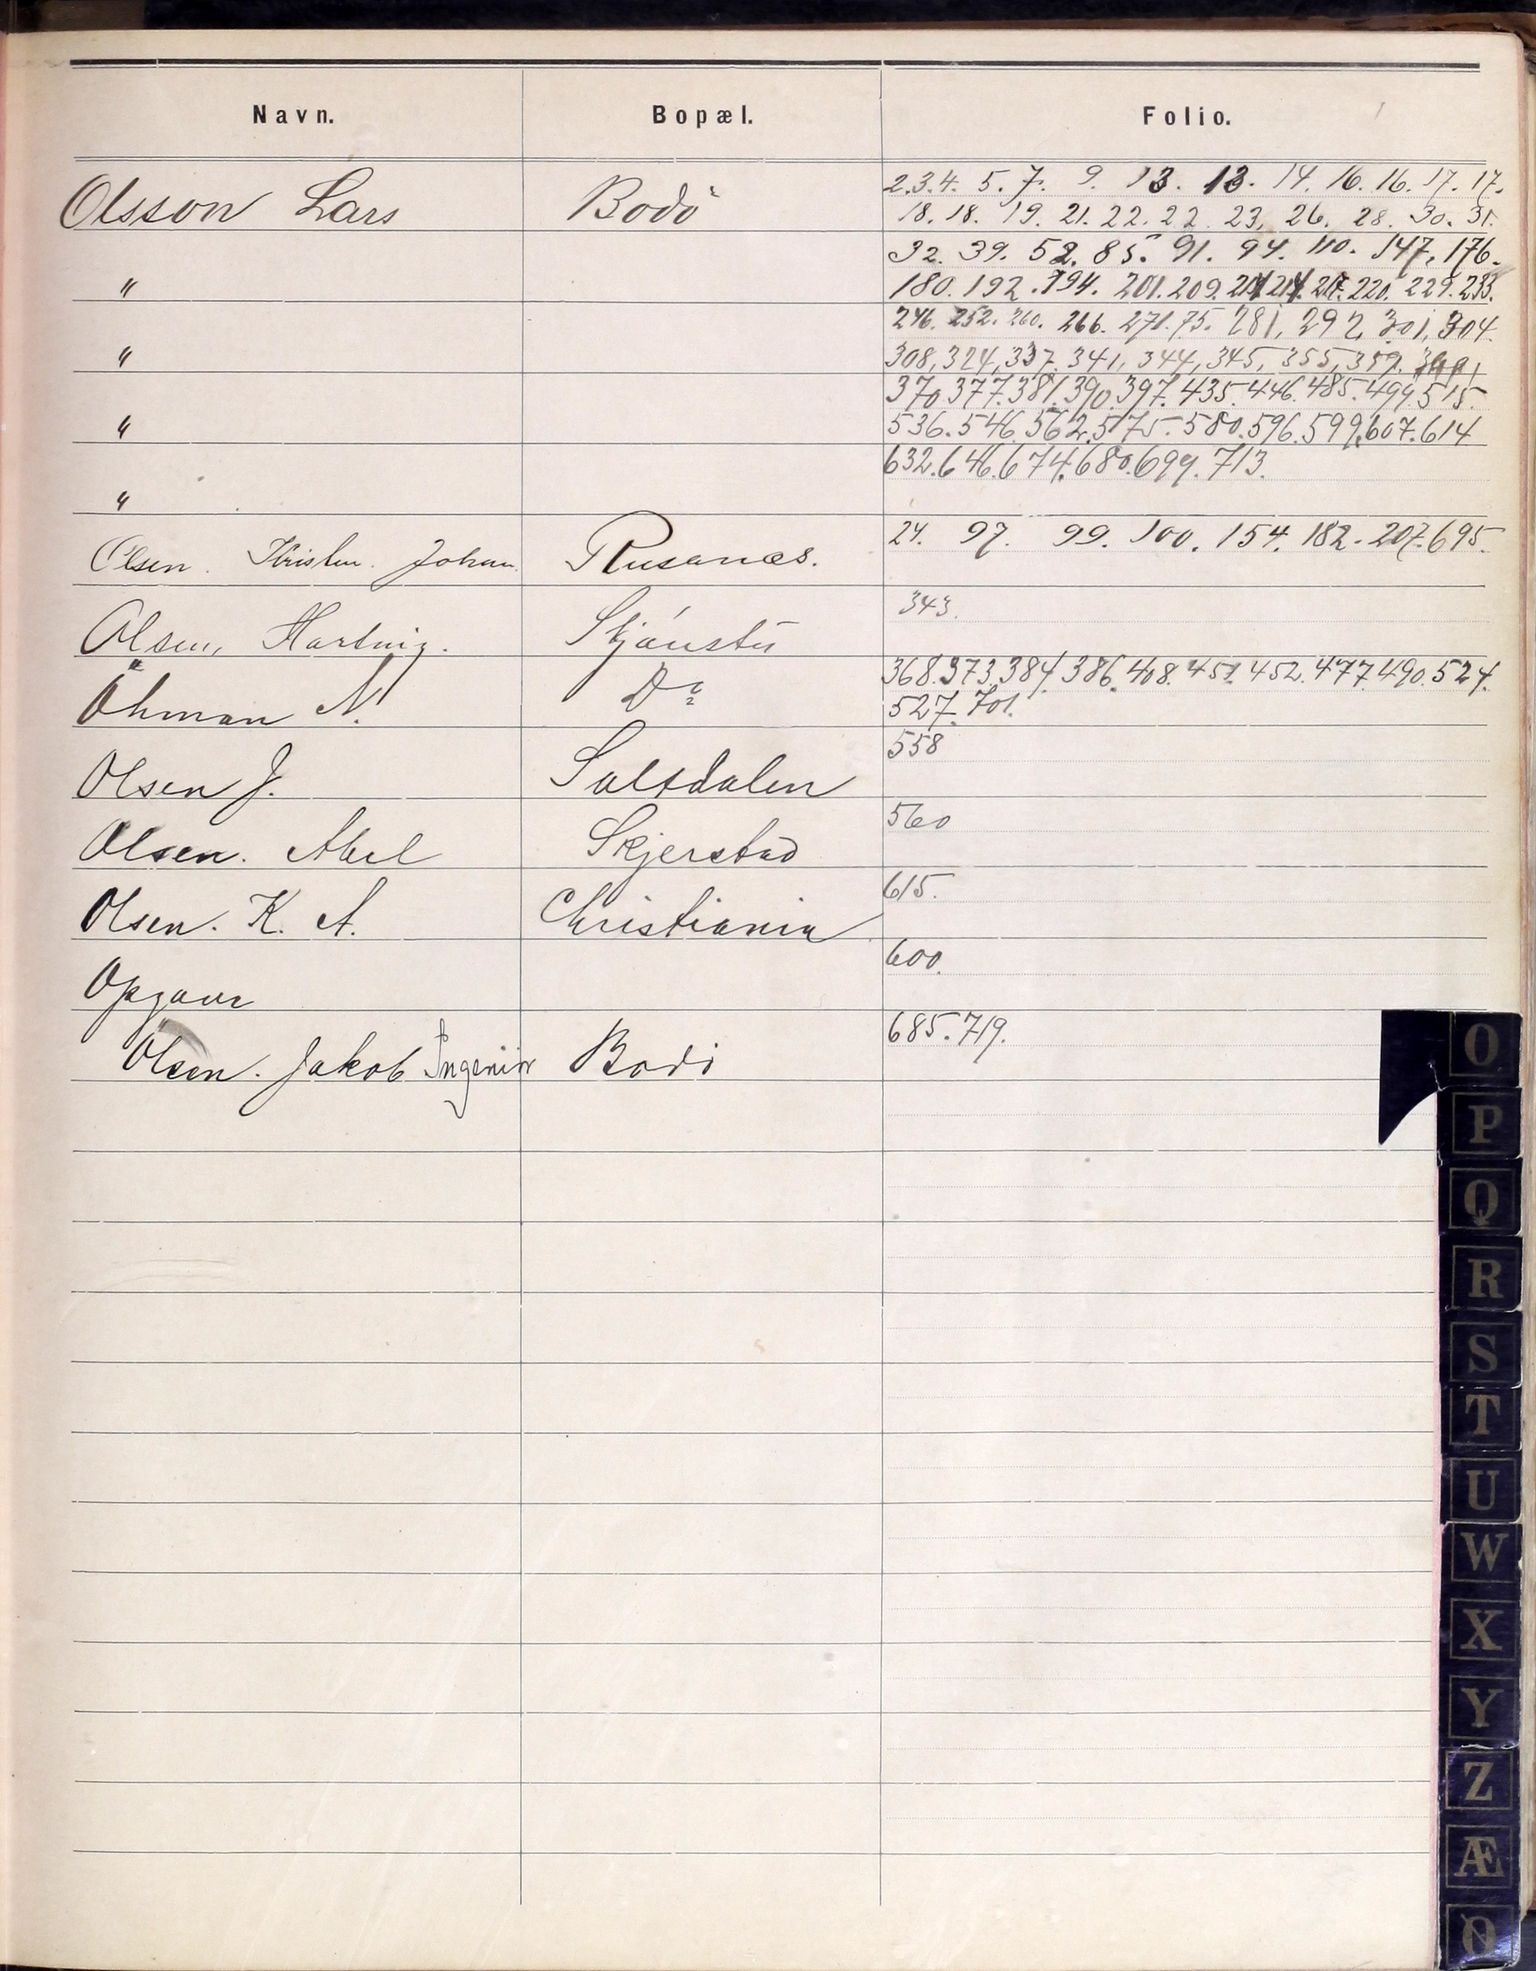 Navn. Bopæl. Folio.
Olsson Lars Bodö 2. 3. 4. 5. 7. 9. 13. 13. 14. 16. 16. 17. 17.
18. 18. 19. 21. 22. 22. 23. 26. 28. 30. 31.
32. 39. 52. 85. 91. 94. 110. 147. 176.
" 180. 192. 194. 201. 209. 214. 214. 217. 220. 229. 233.
246. 252. 260. 266. 271. 75. 281, 292, 301, 304.
" 308, 324, 337, 341, 344, 345, 355, 359.
370 377. 381. 390. 397. 435. 446. 485. 499. 515.
" 536. 546. 562. 575. 580. 596. 599. 607. 614
632. 646. 674. 680. 699. 713.
"
Olsen. Kristen. Johan. Rusanæs. 24. 97. 99. 100. 154. 182. 207. 695.
Olsen, Hartvig. Skjönstu 343.
Öhman N. Do 368. 373. 384. 386. 408. 451. 452. 477. 490. 524.
527. 701.
Olsen J. Saltdalen 558
Olsen. Abel Skjerstad 560
Olsen. K. A. Christiania 615.
Opgave 600.
Olsen. Jakob Ingeniör Bodö 685. 719.
O
P
Q
R
S
T
U
W
X
Y
Z
Æ
Ø